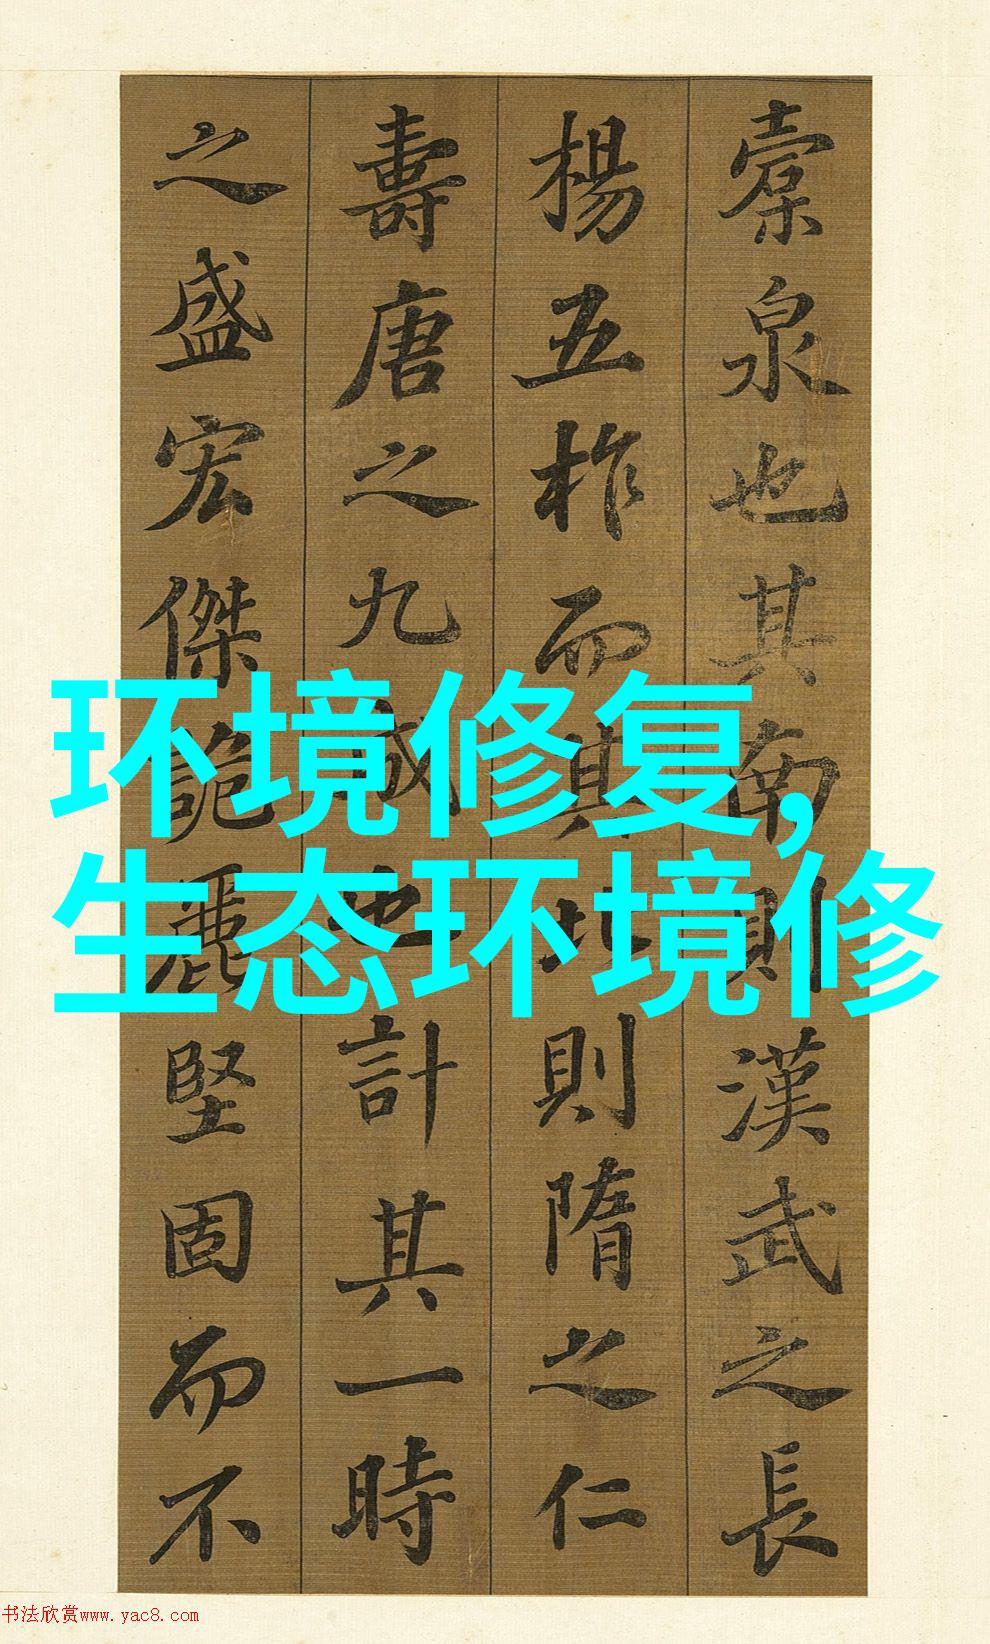 槖泉也其南則漢武之長
楊五柞而其北則隋之仁
壽唐之九成也計其一時
之盛宏傑詭麗堅固而不
环境修复,
生态环境修
书法欣赏www.yac8.com